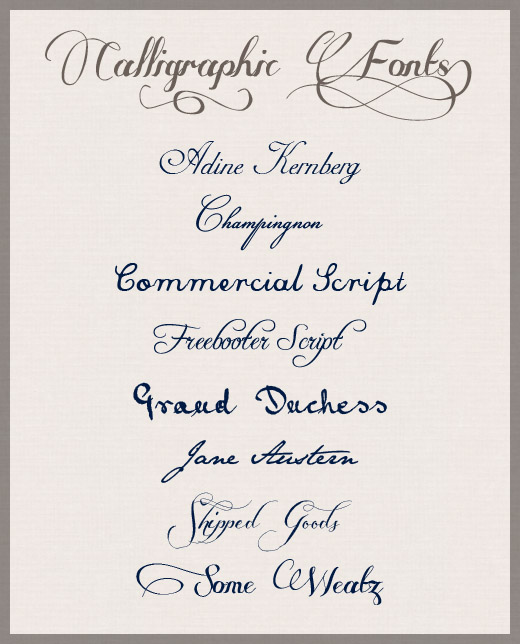 Calligraphic Fonts
Adine Kernberg
Champingnon
Commercial Script
Freebooter Script
Graud Duchess
Jane Austern
Shipped Goods
Some Weatz